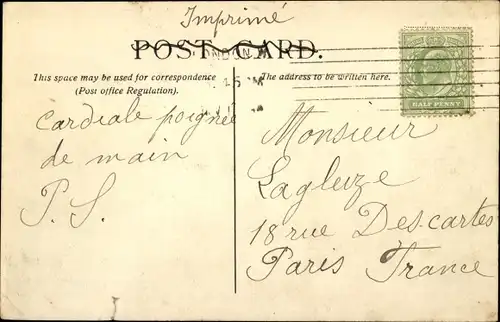 Imprimé
POST CARD.
This space may be used for correspondence
(Post office Regulation).
The address to be written here.
HALF PENNY
Cardiale poignée
de main
P. S.
Monsieur
Lagleize
18 rue Descartes
Paris France